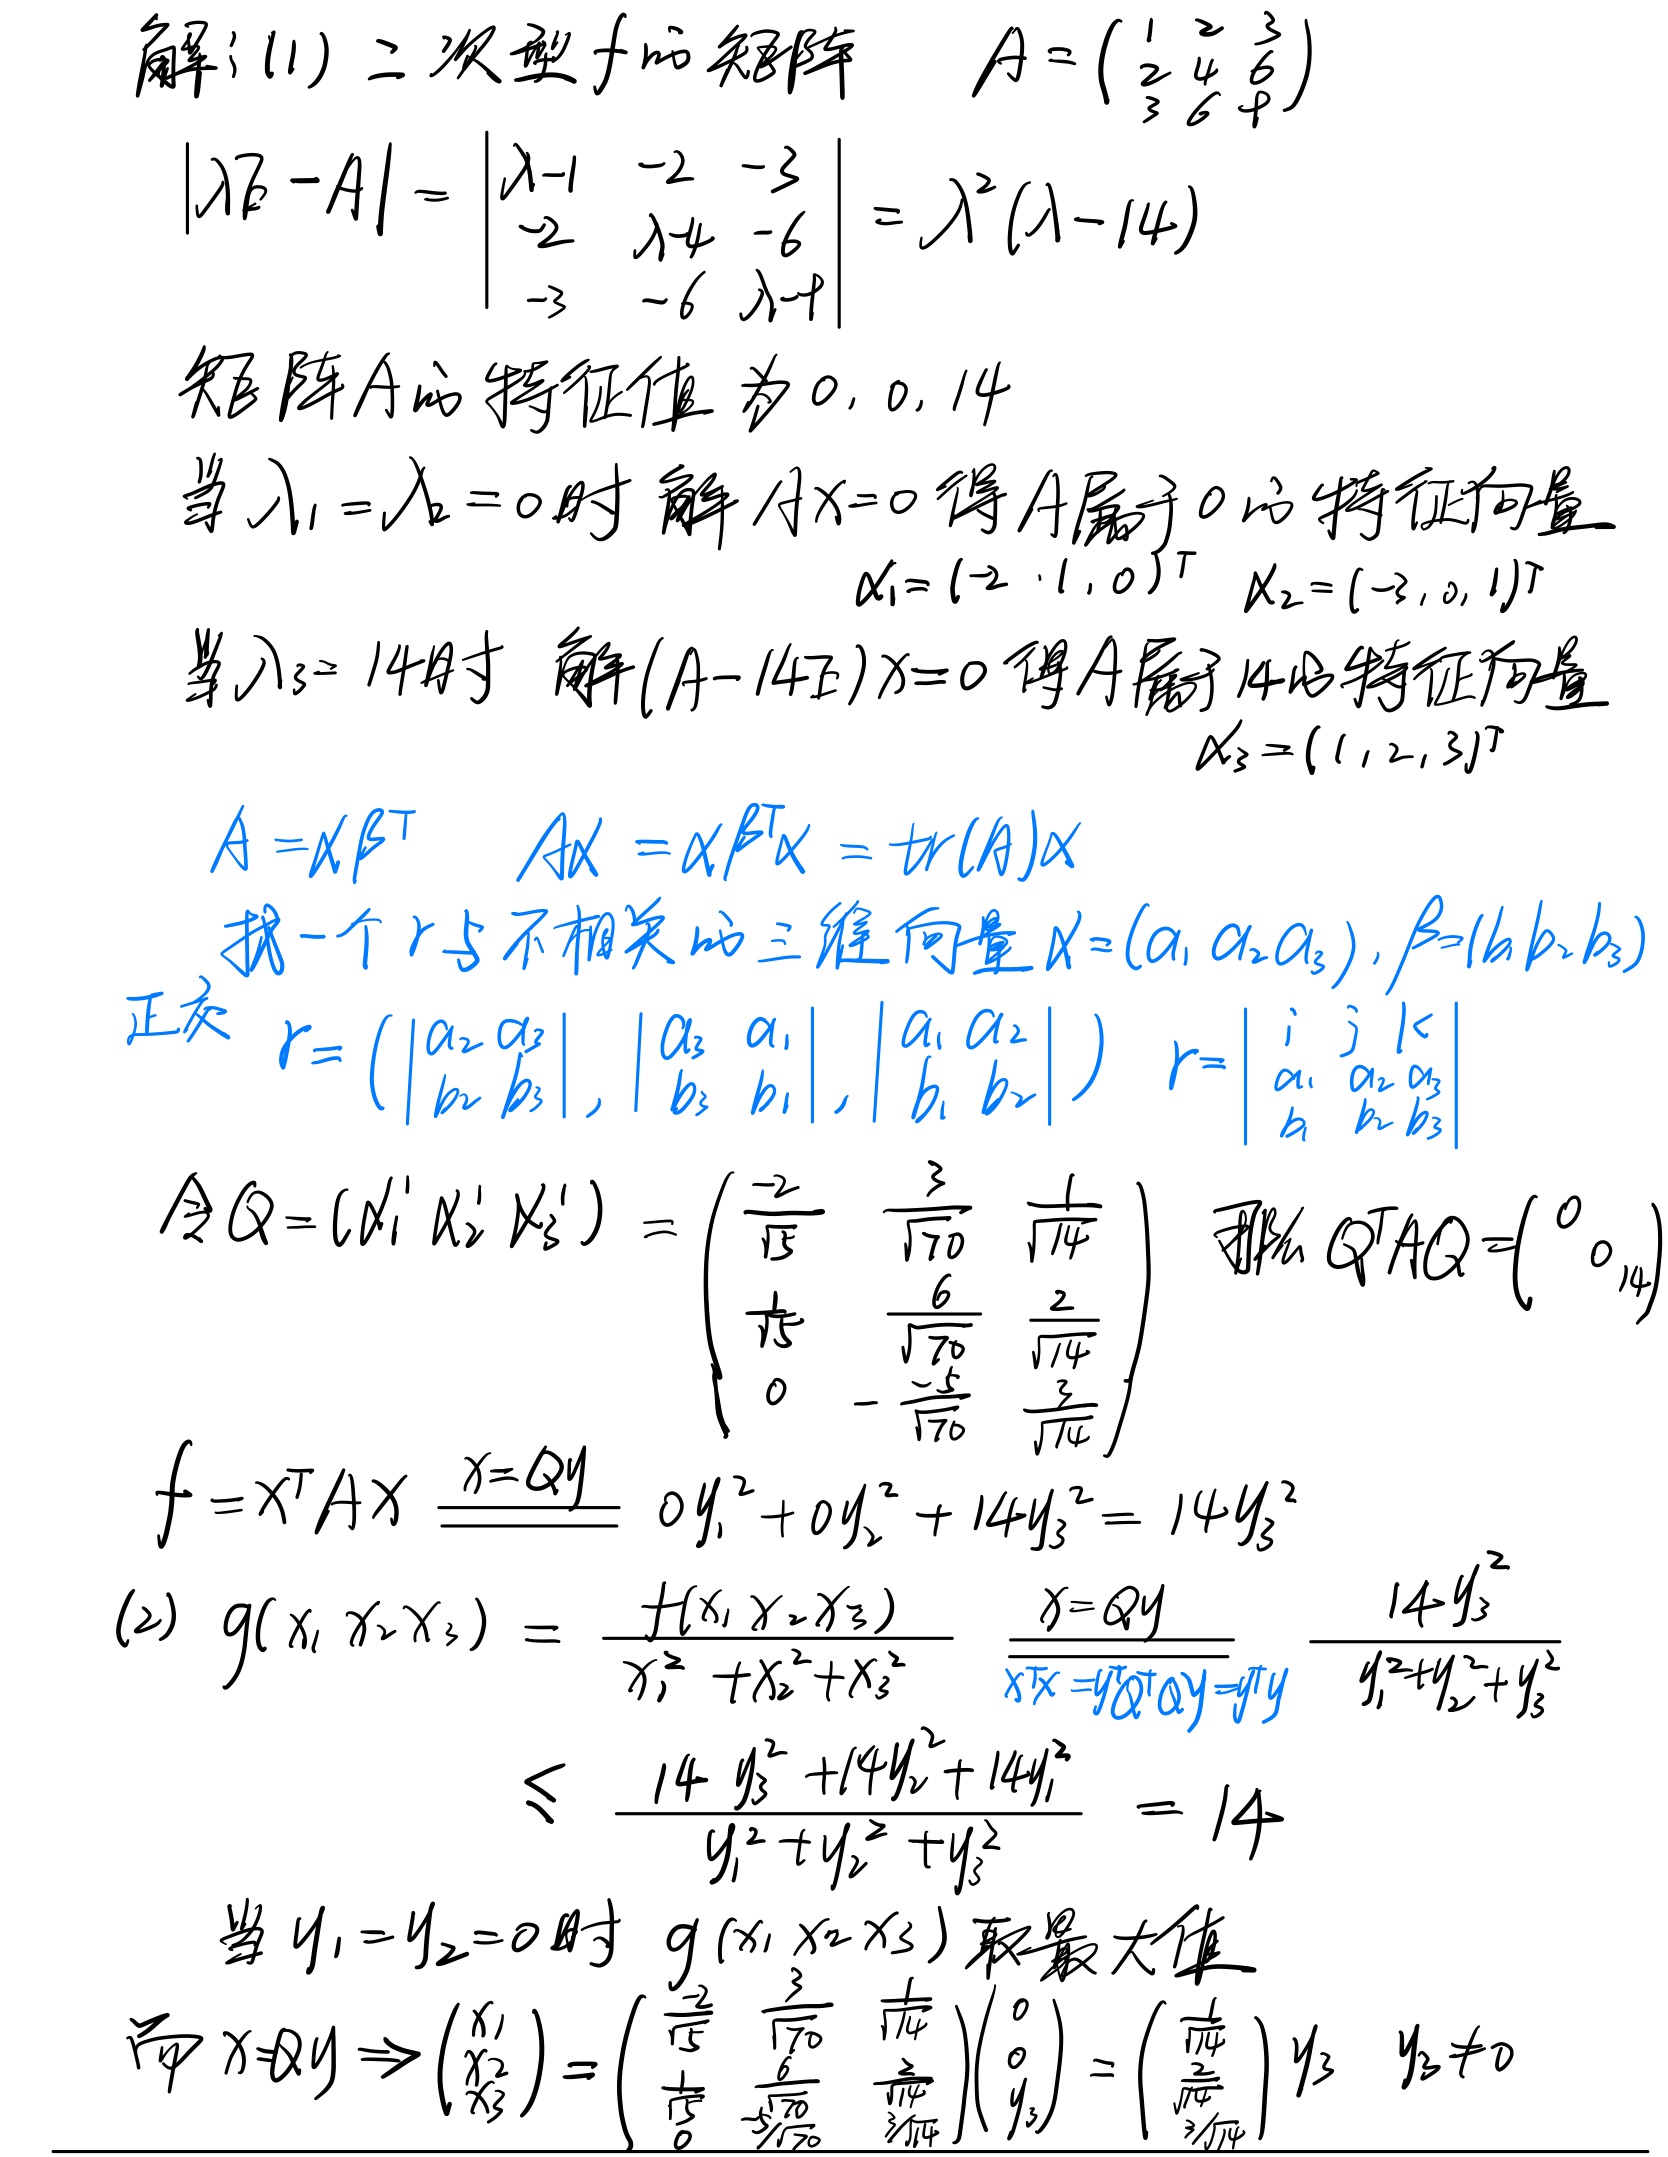 解：(1) 二次型f的矩阵 A = (1 2 3
2 4 6
3 6 9)
|λE - A| = |λ-1 -2 -3
-2 λ-4 -6
-3 -6 λ-9| = λ²(λ-14)
矩阵A的特征值为0, 0, 14
当λ₁=λ₂=0时 解AX=0得A属于0的特征向量
α₁=(-2, 1, 0)ᵀ α₂=(-3, 0, 1)ᵀ
当λ₃=14时 解(A-14E)X=0得A属于14的特征向量
α₃=(1, 2, 3)ᵀ
A=αβᵀ Aα=αβᵀα=tr(A)α
找一个r与不相关的三维向量α=(a₁ a₂ a₃), β=(b₁ b₂ b₃)
正交 r=(|a₂ a₃; b₂ b₃|, |a₃ a₁; b₃ b₁|, |a₁ a₂; b₁ b₂|) r=|i j k; a₁ a₂ a₃; b₁ b₂ b₃|
令Q=(α₁' α₂' α₃') = (-2/√5 3/√70 1/√14
1/√5 6/√70 2/√14
0 - -5/√70 3/√14) 那么 QᵀAQ=(0 0 14)
f=XᵀAX ==(x=Qy)== 0y₁²+0y₂²+14y₃²=14y₃²
(2) g(x₁ x₂ x₃) = f(x₁ x₂ x₃)/(x₁²+x₂²+x₃²) ==(x=Qy)== 14y₃²/(y₁²+y₂²+y₃²)
xᵀx=yᵀQᵀQy=yᵀy
≤ (14y₃²+14y₂²+14y₁²)/(y₁²+y₂²+y₃²) = 14
当y₁=y₂=0时 g(x₁ x₂ x₃)取最大值
而x=Qy ⇒ (x₁; x₂; x₃) = (-2/√5 3/√70 1/√14; 1/√5 6/√70 2/√14; 0 -5/√70 3/√14)(0; 0; y₃) = (1/√14; 2/√14; 3/√14) y₃ y₃≠0